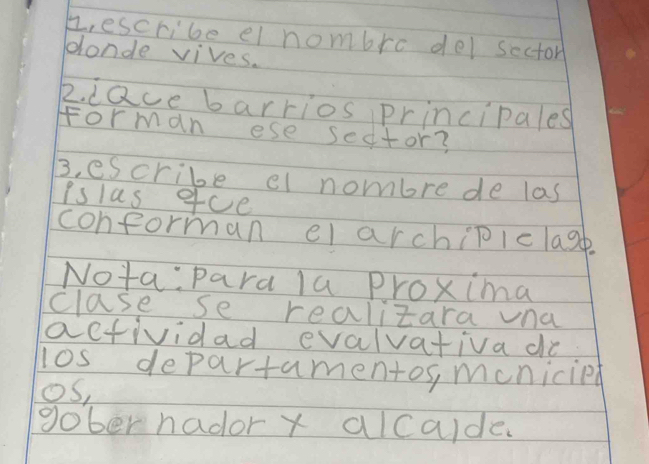 1. escribe el nombre del sector
donde vives.
2. ¿Que barrios principales
forman ese sector?
3. escribe el nombre de las
islas que
conforman el archipielago.
Nota: Para la Proxima
clase se realizara una
actividad evaluativa de
los departamentos, municipi
os,
gobernador y alcalde.